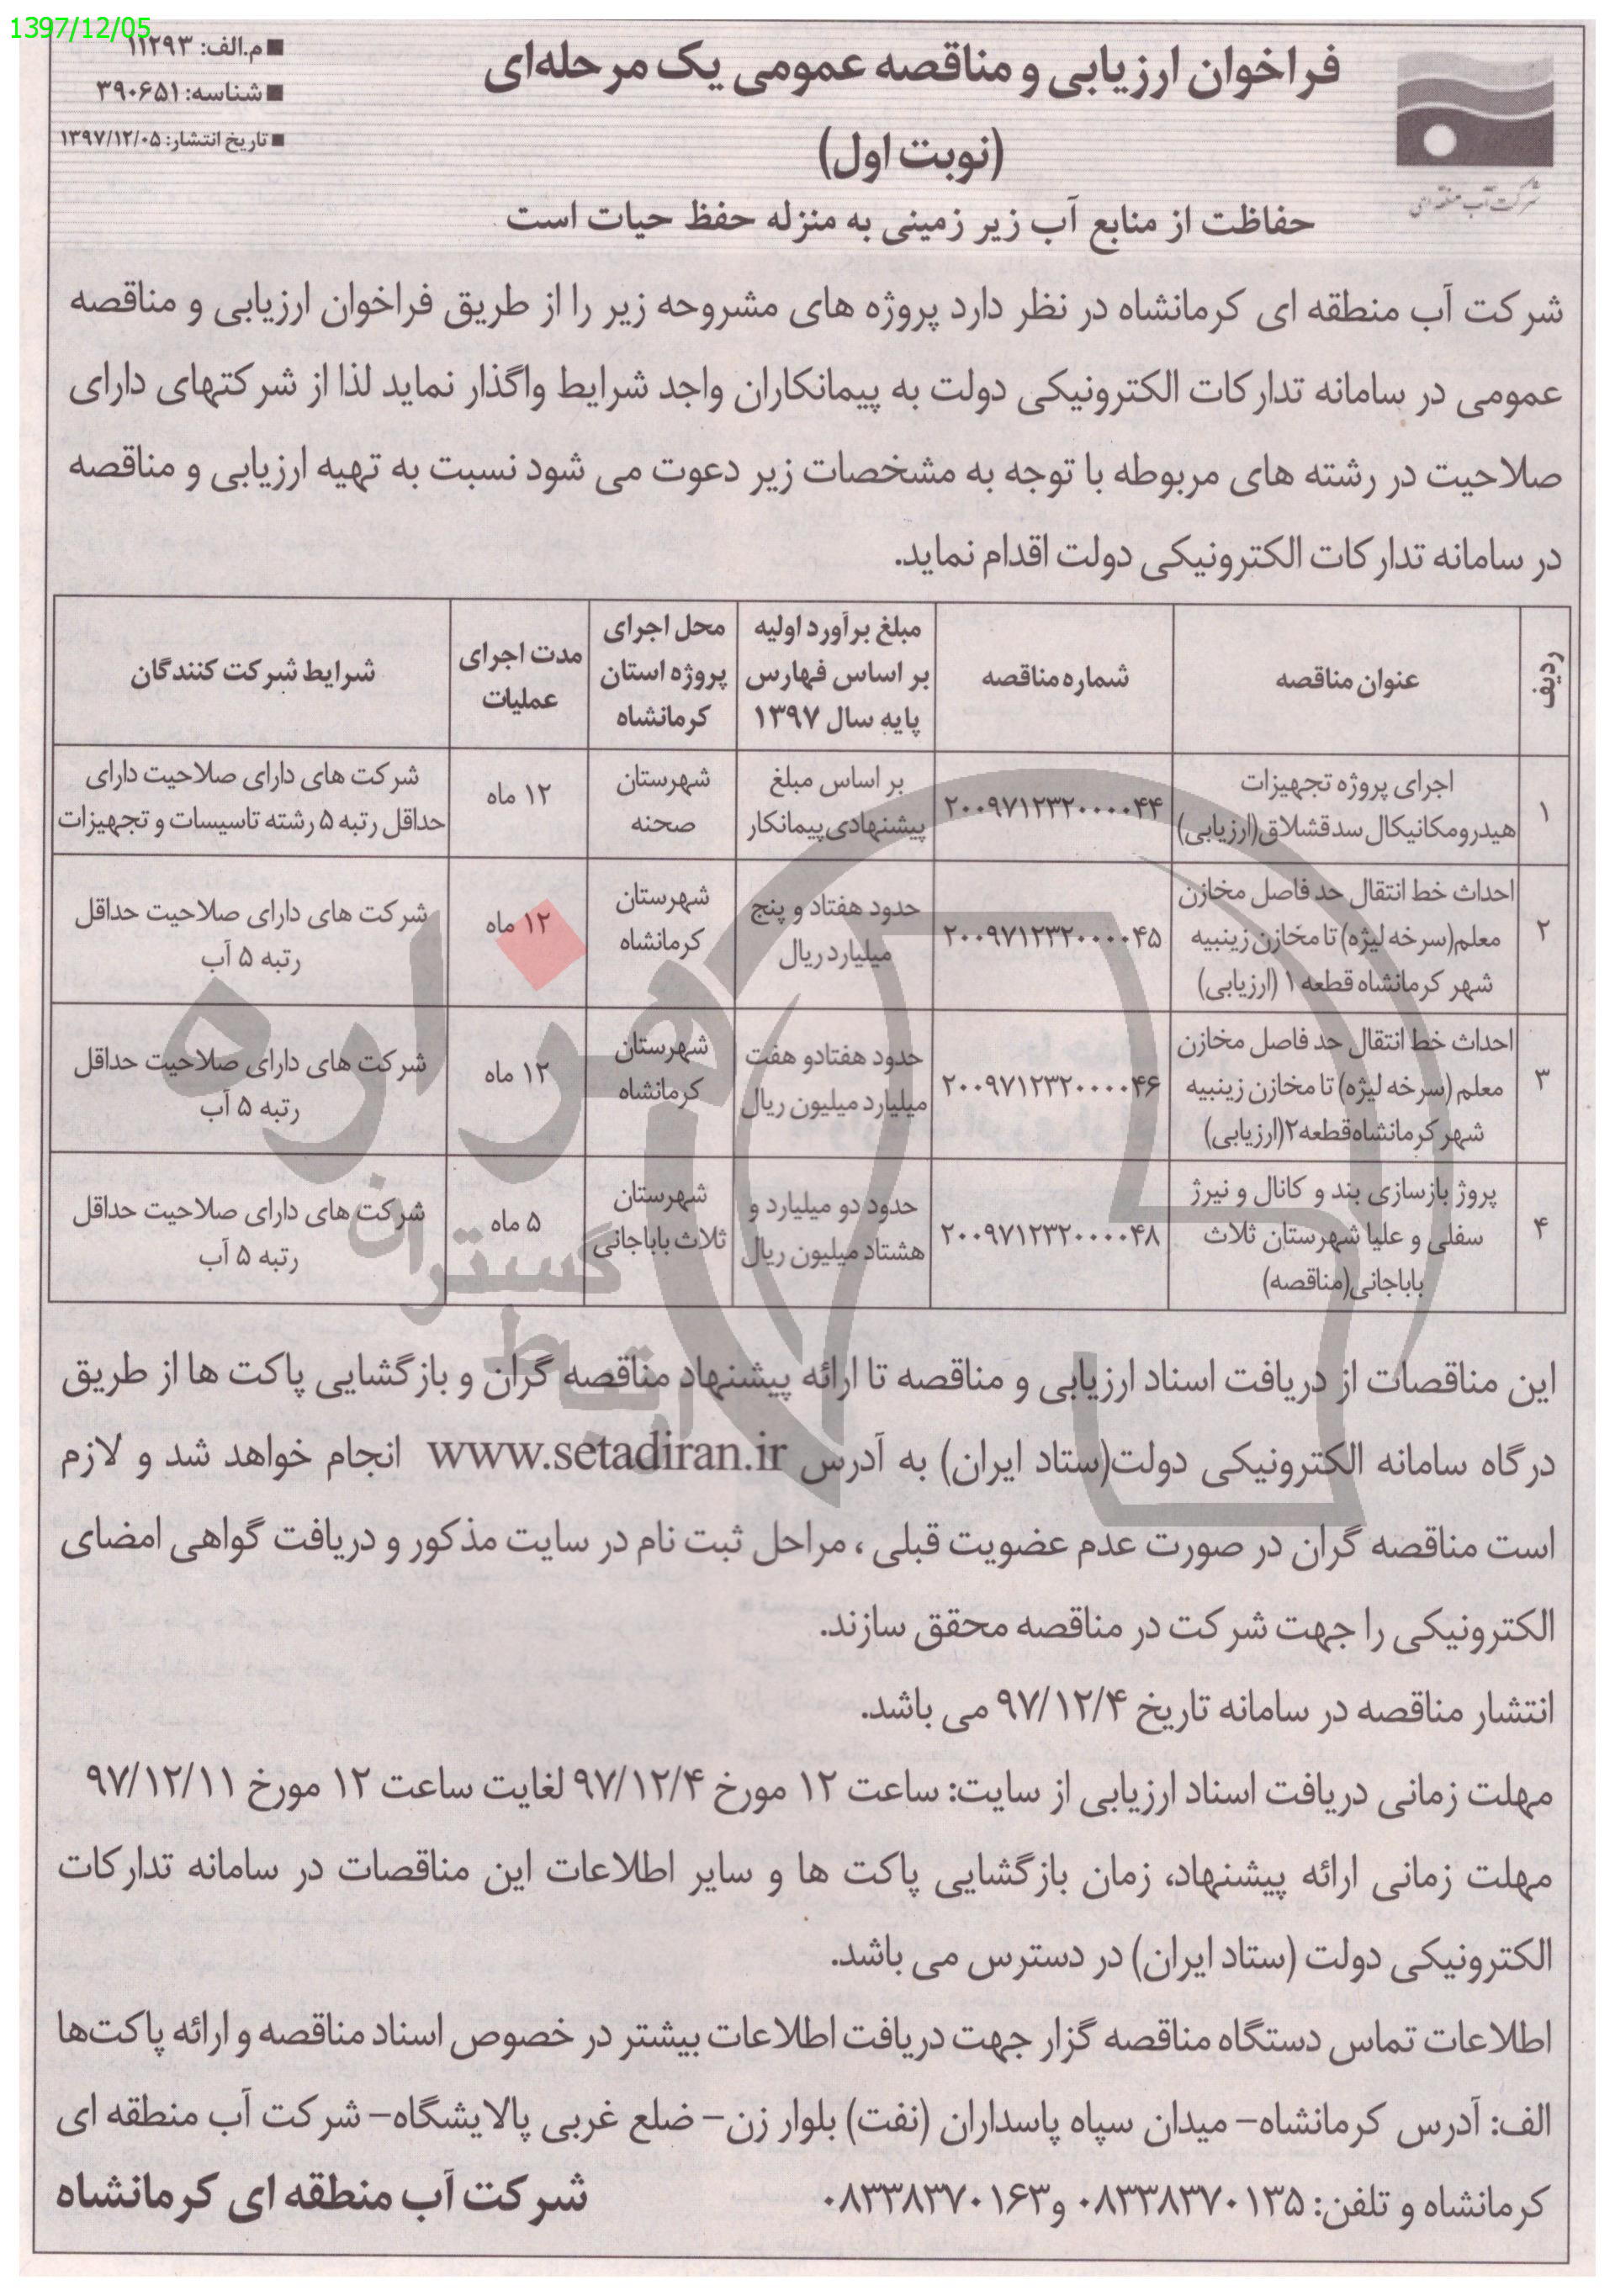 1397/12/05
م.الف: ۱۱۲۹۳
شناسه: ۳۹۰۶۵۱
تاریخ انتشار: ۱۳۹۷/۱۲/۰۵
فراخوان ارزیابی و مناقصه عمومی یک مرحله‌ای
(نوبت اول)
حفاظت از منابع آب زیر زمینی به منزله حفظ حیات است
شرکت آب منطقه ای
شرکت آب منطقه ای کرمانشاه در نظر دارد پروژه های مشروحه زیر را از طریق فراخوان ارزیابی و مناقصه
عمومی در سامانه تدارکات الکترونیکی دولت به پیمانکاران واجد شرایط واگذار نماید لذا از شرکتهای دارای
صلاحیت در رشته های مربوطه با توجه به مشخصات زیر دعوت می شود نسبت به تهیه ارزیابی و مناقصه
در سامانه تدارکات الکترونیکی دولت اقدام نماید.
ردیف
عنوان مناقصه
شماره مناقصه
مبلغ برآورد اولیه
بر اساس فهارس
پایه سال ۱۳۹۷
محل اجرای
پروژه استان
کرمانشاه
مدت اجرای
عملیات
شرایط شرکت کنندگان
۱
اجرای پروژه تجهیزات
هیدرومکانیکال سد قشلاق(ارزیابی)
۲۰۰۹۷۱۲۳۲۰۰۰۰۰۴۴
بر اساس مبلغ
پیشنهادی پیمانکار
شهرستان
صحنه
۱۲ ماه
شرکت های دارای صلاحیت دارای
حداقل رتبه ۵ رشته تاسیسات و تجهیزات
۲
احداث خط انتقال حد فاصل مخازن
معلم(سرخه لیژه) تا مخازن زینبیه
شهر کرمانشاه قطعه ۱ (ارزیابی)
۲۰۰۹۷۱۲۳۲۰۰۰۰۰۴۵
حدود هفتاد و پنج
میلیارد ریال
شهرستان
کرمانشاه
۱۲ ماه
شرکت های دارای صلاحیت حداقل
رتبه ۵ آب
۳
احداث خط انتقال حد فاصل مخازن
معلم (سرخه لیژه) تا مخازن زینبیه
شهر کرمانشاه قطعه۲(ارزیابی)
۲۰۰۹۷۱۲۳۲۰۰۰۰۰۴۶
حدود هفتادو هفت
میلیارد میلیون ریال
شهرستان
کرمانشاه
۱۲ ماه
شرکت های دارای صلاحیت حداقل
رتبه ۵ آب
۴
پروژ بازسازی بند و کانال و نیرژ
سفلی و علیا شهرستان ثلاث
باباجانی(مناقصه)
۲۰۰۹۷۱۲۳۲۰۰۰۰۰۴۸
حدود دو میلیارد و
هشتاد میلیون ریال
شهرستان
ثلاث باباجانی
۵ ماه
شرکت های دارای صلاحیت حداقل
رتبه ۵ آب
هزاره
گستران
این مناقصات از دریافت اسناد ارزیابی و مناقصه تا ارائه پیشنهاد مناقصه گران و بازگشایی پاکت ها از طریق
درگاه سامانه الکترونیکی دولت(ستاد ایران) به آدرس www.setadiran.ir انجام خواهد شد و لازم
است مناقصه گران در صورت عدم عضویت قبلی ، مراحل ثبت نام در سایت مذکور و دریافت گواهی امضای
الکترونیکی را جهت شرکت در مناقصه محقق سازند.
انتشار مناقصه در سامانه تاریخ ۹۷/۱۲/۴ می باشد.
مهلت زمانی دریافت اسناد ارزیابی از سایت: ساعت ۱۲ مورخ ۹۷/۱۲/۴ لغایت ساعت ۱۲ مورخ ۹۷/۱۲/۱۱
مهلت زمانی ارائه پیشنهاد، زمان بازگشایی پاکت ها و سایر اطلاعات این مناقصات در سامانه تدارکات
الکترونیکی دولت (ستاد ایران) در دسترس می باشد.
اطلاعات تماس دستگاه مناقصه گزار جهت دریافت اطلاعات بیشتر در خصوص اسناد مناقصه و ارائه پاکت‌ها
الف: آدرس کرمانشاه– میدان سپاه پاسداران (نفت) بلوار زن– ضلع غربی پالایشگاه– شرکت آب منطقه ای
کرمانشاه و تلفن: ۰۸۳۳۸۳۷۰۱۳۵ و۰۸۳۳۸۳۷۰۱۶۳
شرکت آب منطقه ای کرمانشاه